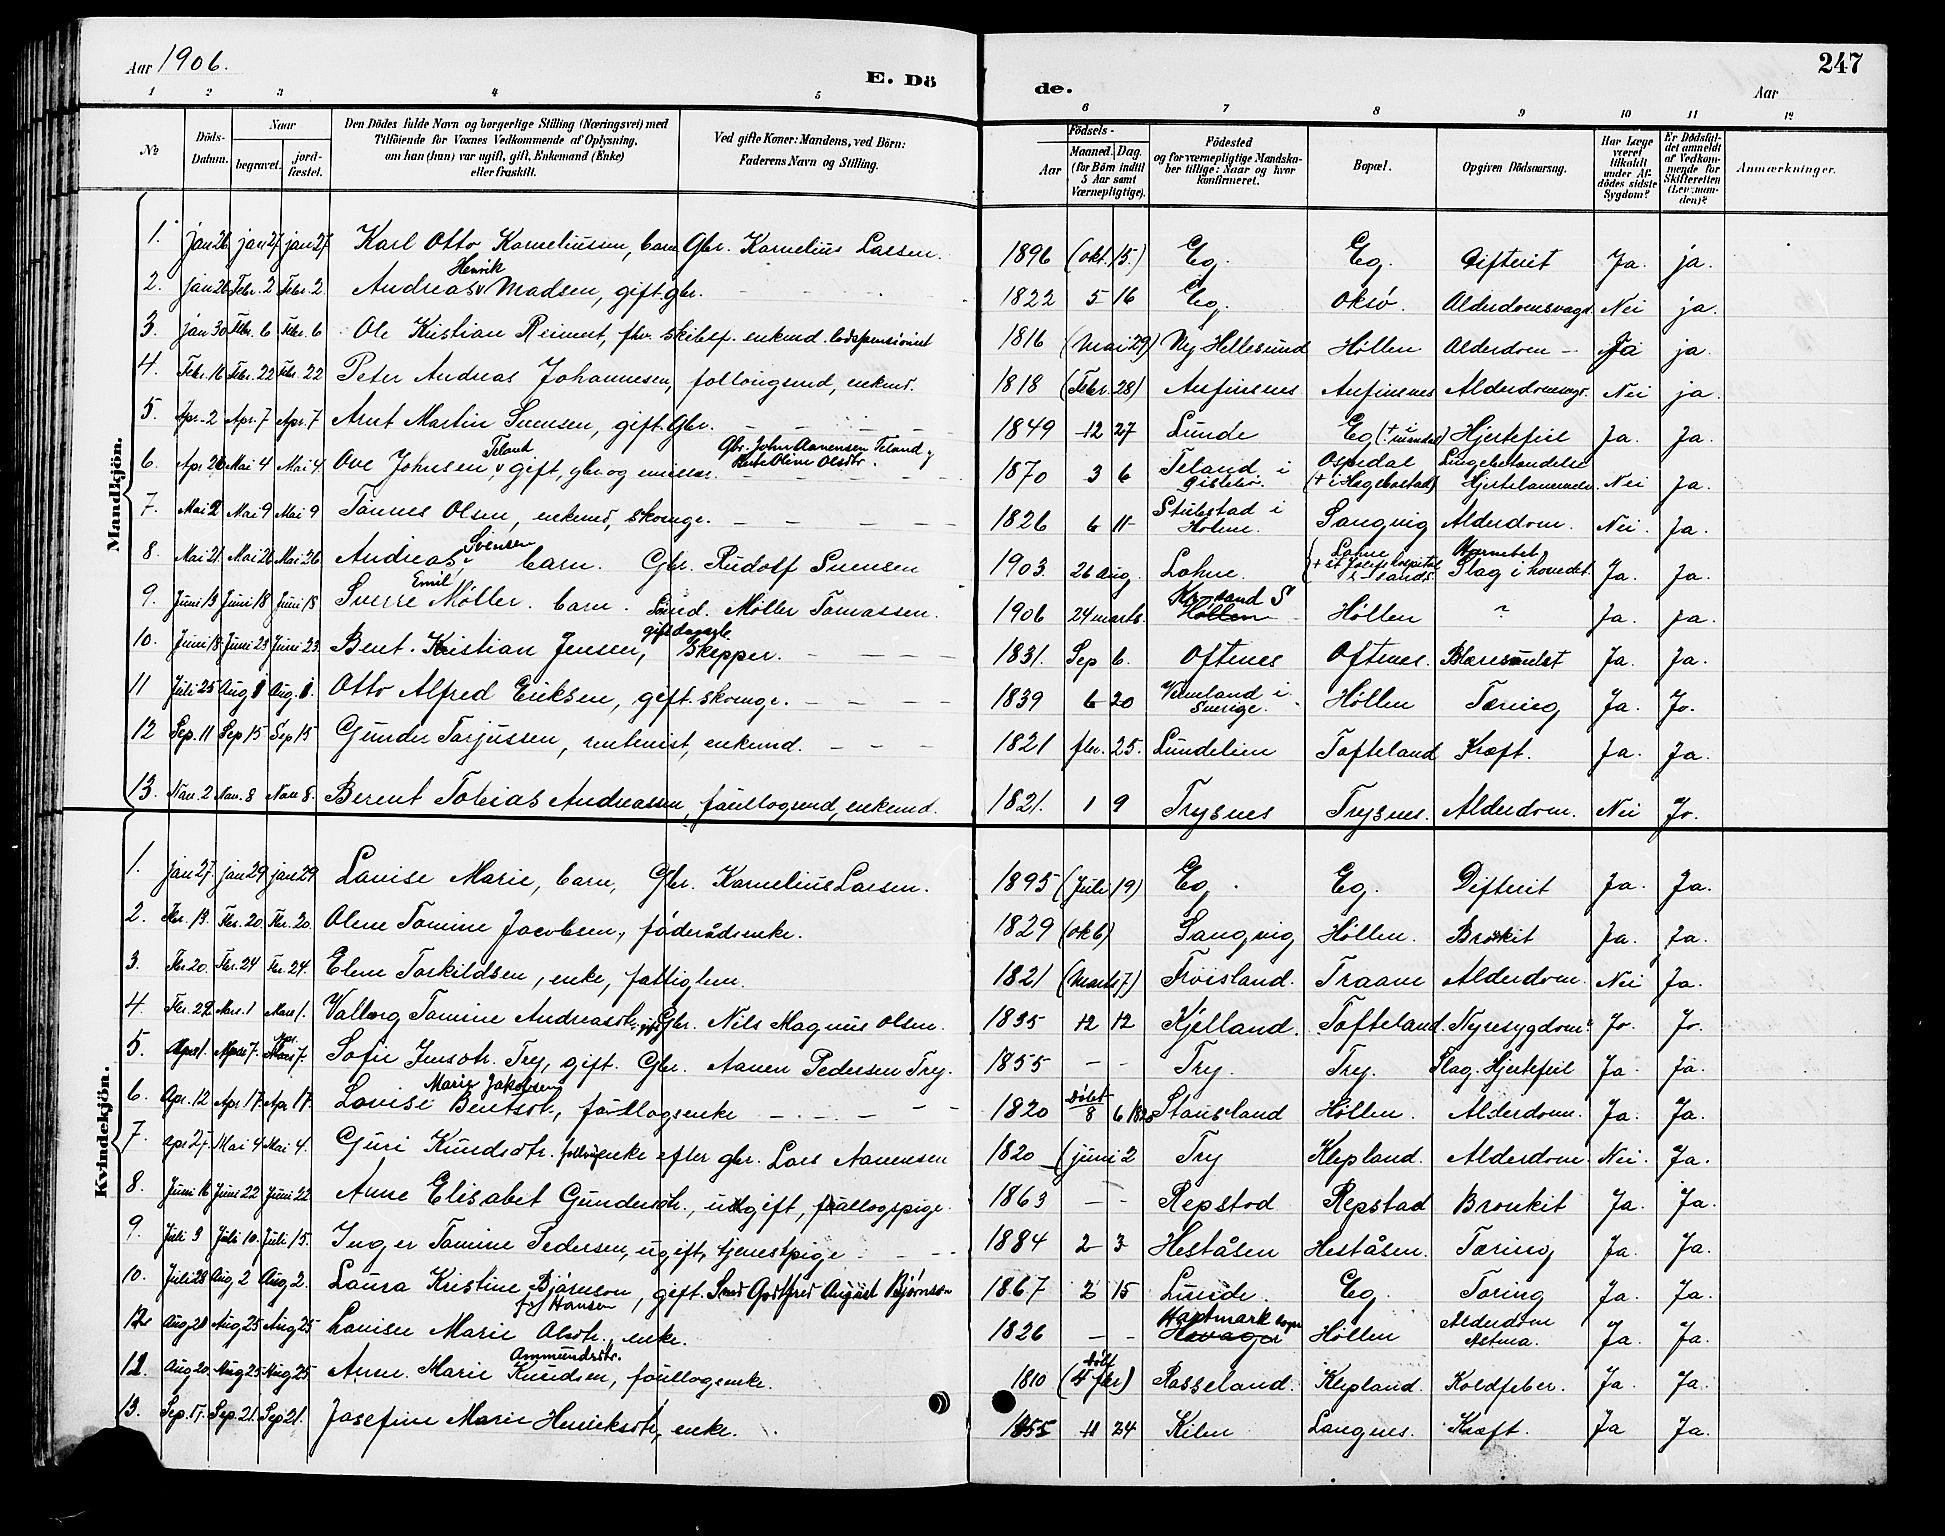 Aar 1906.
E. Dö
de.
Aar
247
1 2 3 4 5 6 7 8 9 10 11 12
No
Döds-Datum.
Naar
begravet. jord-fæstet.
Den Dödes fulde Navn og borgerlige Stilling (Næringsvei) med
Tilföiende for Voxnes Vedkommende af Oplysning,
om han (hun) var ugift, gift, Enkemand (Enke)
eller fraskilt.
Ved gifte Koner: Mandens, ved Börn:
Faderens Navn og Stilling.
Födsels-
Aar
Maaned. Dag.
(for Börn indtil
5 Aar samt
Værnepligtige).
Födested
og for værnepligtige Mandska-
ber tillige: Naar og hvor
konfirmeret.
Bopæl.
Opgiven Dödsaarsag.
Har Læge
været
tilkaldt
under Af-
dödes sidste
Sygdom?
Er Dödsfal-
det anmeldt
af Vedkom-
mende for
Skifteretten
(Lensman-
den)?
Anmærkninger.
Mandkjön.
1. Jan 26 jan 27 jan 27 Karl Otto Korneliussen, barn Gbr. Kornelius Larsen. 1896 (okt. 15.) Eg. Eg. Difterit Ja. ja.
2. jan 26 Febr. 2 Febr. 2 Andreas Henrik Madsen, gift. gbr. 1822 5 16 Eg. Oksø. Alderdomsvags Nei ja.
3 jan 30 Febr. 6 Febr. 6 Ole Kristian Reinert, fhv. skibsf. enkmd. lodspensionist 1816 (Mai 29) Ny Hellesund Høllen Alderdom - Ja ja.
4. Febr. 16 Febr. 22 Febr. 22 Peter Andreas Johannesen, follougsmd, enkmd. 1818 (Febr. 28) Aufinsnes Aufinsnes Alderdomsvags. Nei ja.
5. Apr. 2 Apr. 7 Apr. 7 Arnt Martin Svensen, gift. Gbr. 1849 12 27 Lunde Eg (+ i Mandal) Hjertefeil Ja. Ja.
6. Apr. 26 Mai 4 Mai 4. Ove Johnsen Teland, gift, gbr og emissær. Gbr. John Aanensen Teland og Berte Oline Olsdtr. 1870 3 6 Teland i Ospedal (+ i Hægebostad) Lungebetændelse Hjertelammelse. Nei Ja.
7. Mai 2 Mai 9 Mai 9 Tønnes Olsen, enkemd, skomgr. 1826 6 11 Stubstad i Holme. Langvig Alderdom. Nei. Ja.
8. Mai 21 Mai 26 Mai 26 Andreas Svensen barn. Gbr. Rudolf Svensen 1903. 26 Aug. Lohne. Lohne (+ St. Josefs hospital Kr-sands. Slag i hovedet Ja. Ja.
9. Juni 13 Juni 18 Juni 18 Sverre Emil Møller. barn. Smd. Møller Tomassen. 1906 24 marts. Kr-sand S Høllen Høllen ? Ja. Ja.
10. Juni 18 Juni 23 Juni 23. Bent. Kristian Jensen, gift Skipper. 1831. Sep 6. Oftenes Oftenes. Ja. Ja.
11 Juli 25 Aug 1 Aug. 1. Otto Alfred Eriksen, gift. skomgr. 1839 6 20 Vermland i Sverige. Høllen Tæring Ja. Jo.
12 Sep. 11 Sep 15 Sep 15 Gunder Tarjussen, rentenist, enkemd. 1821 fbr. 25. Lundelien Tofteland Kræft. Ja. Ja.
13. Nov. 2 Nov. 8 Nov 8. Berent Tobias Andreassen, foullogsmd, enkemd. 1821. 1 9 Trysnes Trysnes. Alderdom. Nei Jo.
Kvindekjön.
1. jan 27. jan 29 jan 29 Lovise Marie, barn, Gbr. Kornelius Larsen. 1895 (Juli 19) Eg. Eg. Difterit Ja. Ja.
2. Fbr. 13. Fbr. 20 Fbr. 20 Olene Tomine Jacobsen, føderådsenke. 1829 (okt) Langvig Høllen. Bronkit Ja. Ja.
3. Fbr 20. Fbr. 24 Fbr. 24. Elene Torkildsen, enke, fattiglem. 1821 (Marts 7) Frøisland. Traane Alderdom. Nei Ja.
4. Fbr. 29 Mars. 1 Mars 1. Valborg Tomine Andreasdtr. gift Gbr. Nils Magnus Olsen. 1835 12 12 Kjelland. Tofteland. Nyresygdom Jo. Jo.
5. April 1. April 7. Apr. 7. Sofie Jensdtr. Try, gift. Gbr. Aanen Pedersen Try. 1855 - - Try. Try. Slag. Hjertefeil Ja. Ja.
6. Apr. 12 Apr 17. Apr 17. Lovise Marie Jakobsen Bentsdt., foullogsenke 1820 døbt 8 6 1820 Stausland Høllen. Alderdom. Ja. Ja.
7. apr 27. Mai 4 Mai 4. Guri Knudsdtr. follougsenke efter gbr. Lars Aanensen 1820 (juni 2 Try Klepland. Alderdom. Nei. Ja.
8. Juni 16 Juni 22 Juni 22 Anne Elisabet Gundersdtr., ugift, foullogspige. 1863 - - Repstad Repstad Bronkit Ja. Ja.
9. Juli 3 Juli 10. Juli 15. Inger Tomine Pedersen, ugift, tjenestpige 1884 2 3 Heståsen Heståsen. Tæring Ja. Ja.
10. Juli 28 Aug 2 Aug 2. Laura Kristine Bjørnson f. Hansen, gift. Smd Godtfred August Bjørnson 1867 2 15 Lunde. Eg. Tæring Ja. Ja.
12 Aug 21 Aug 25 Aug 25 Lovise Marie Olsdtr., enke. 1826 - - Hartmark sogn Høllen Alderdom Astma. Ja. Ja.
12. Aug 20. Aug 25 Aug 25 Anne. Marie Ammundsdtr. Knudsen, foullogsenke. 1810 (døbt 4 fbr) Rosseland. Klepland. Koldfeber. Ja. Ja.
13. Sep. 17. Sep. 21. Sep 21. Josefine Marie Henriksdtr, enke. 1855 11 24 Kilen Langnes. Kræft. Ja Ja.